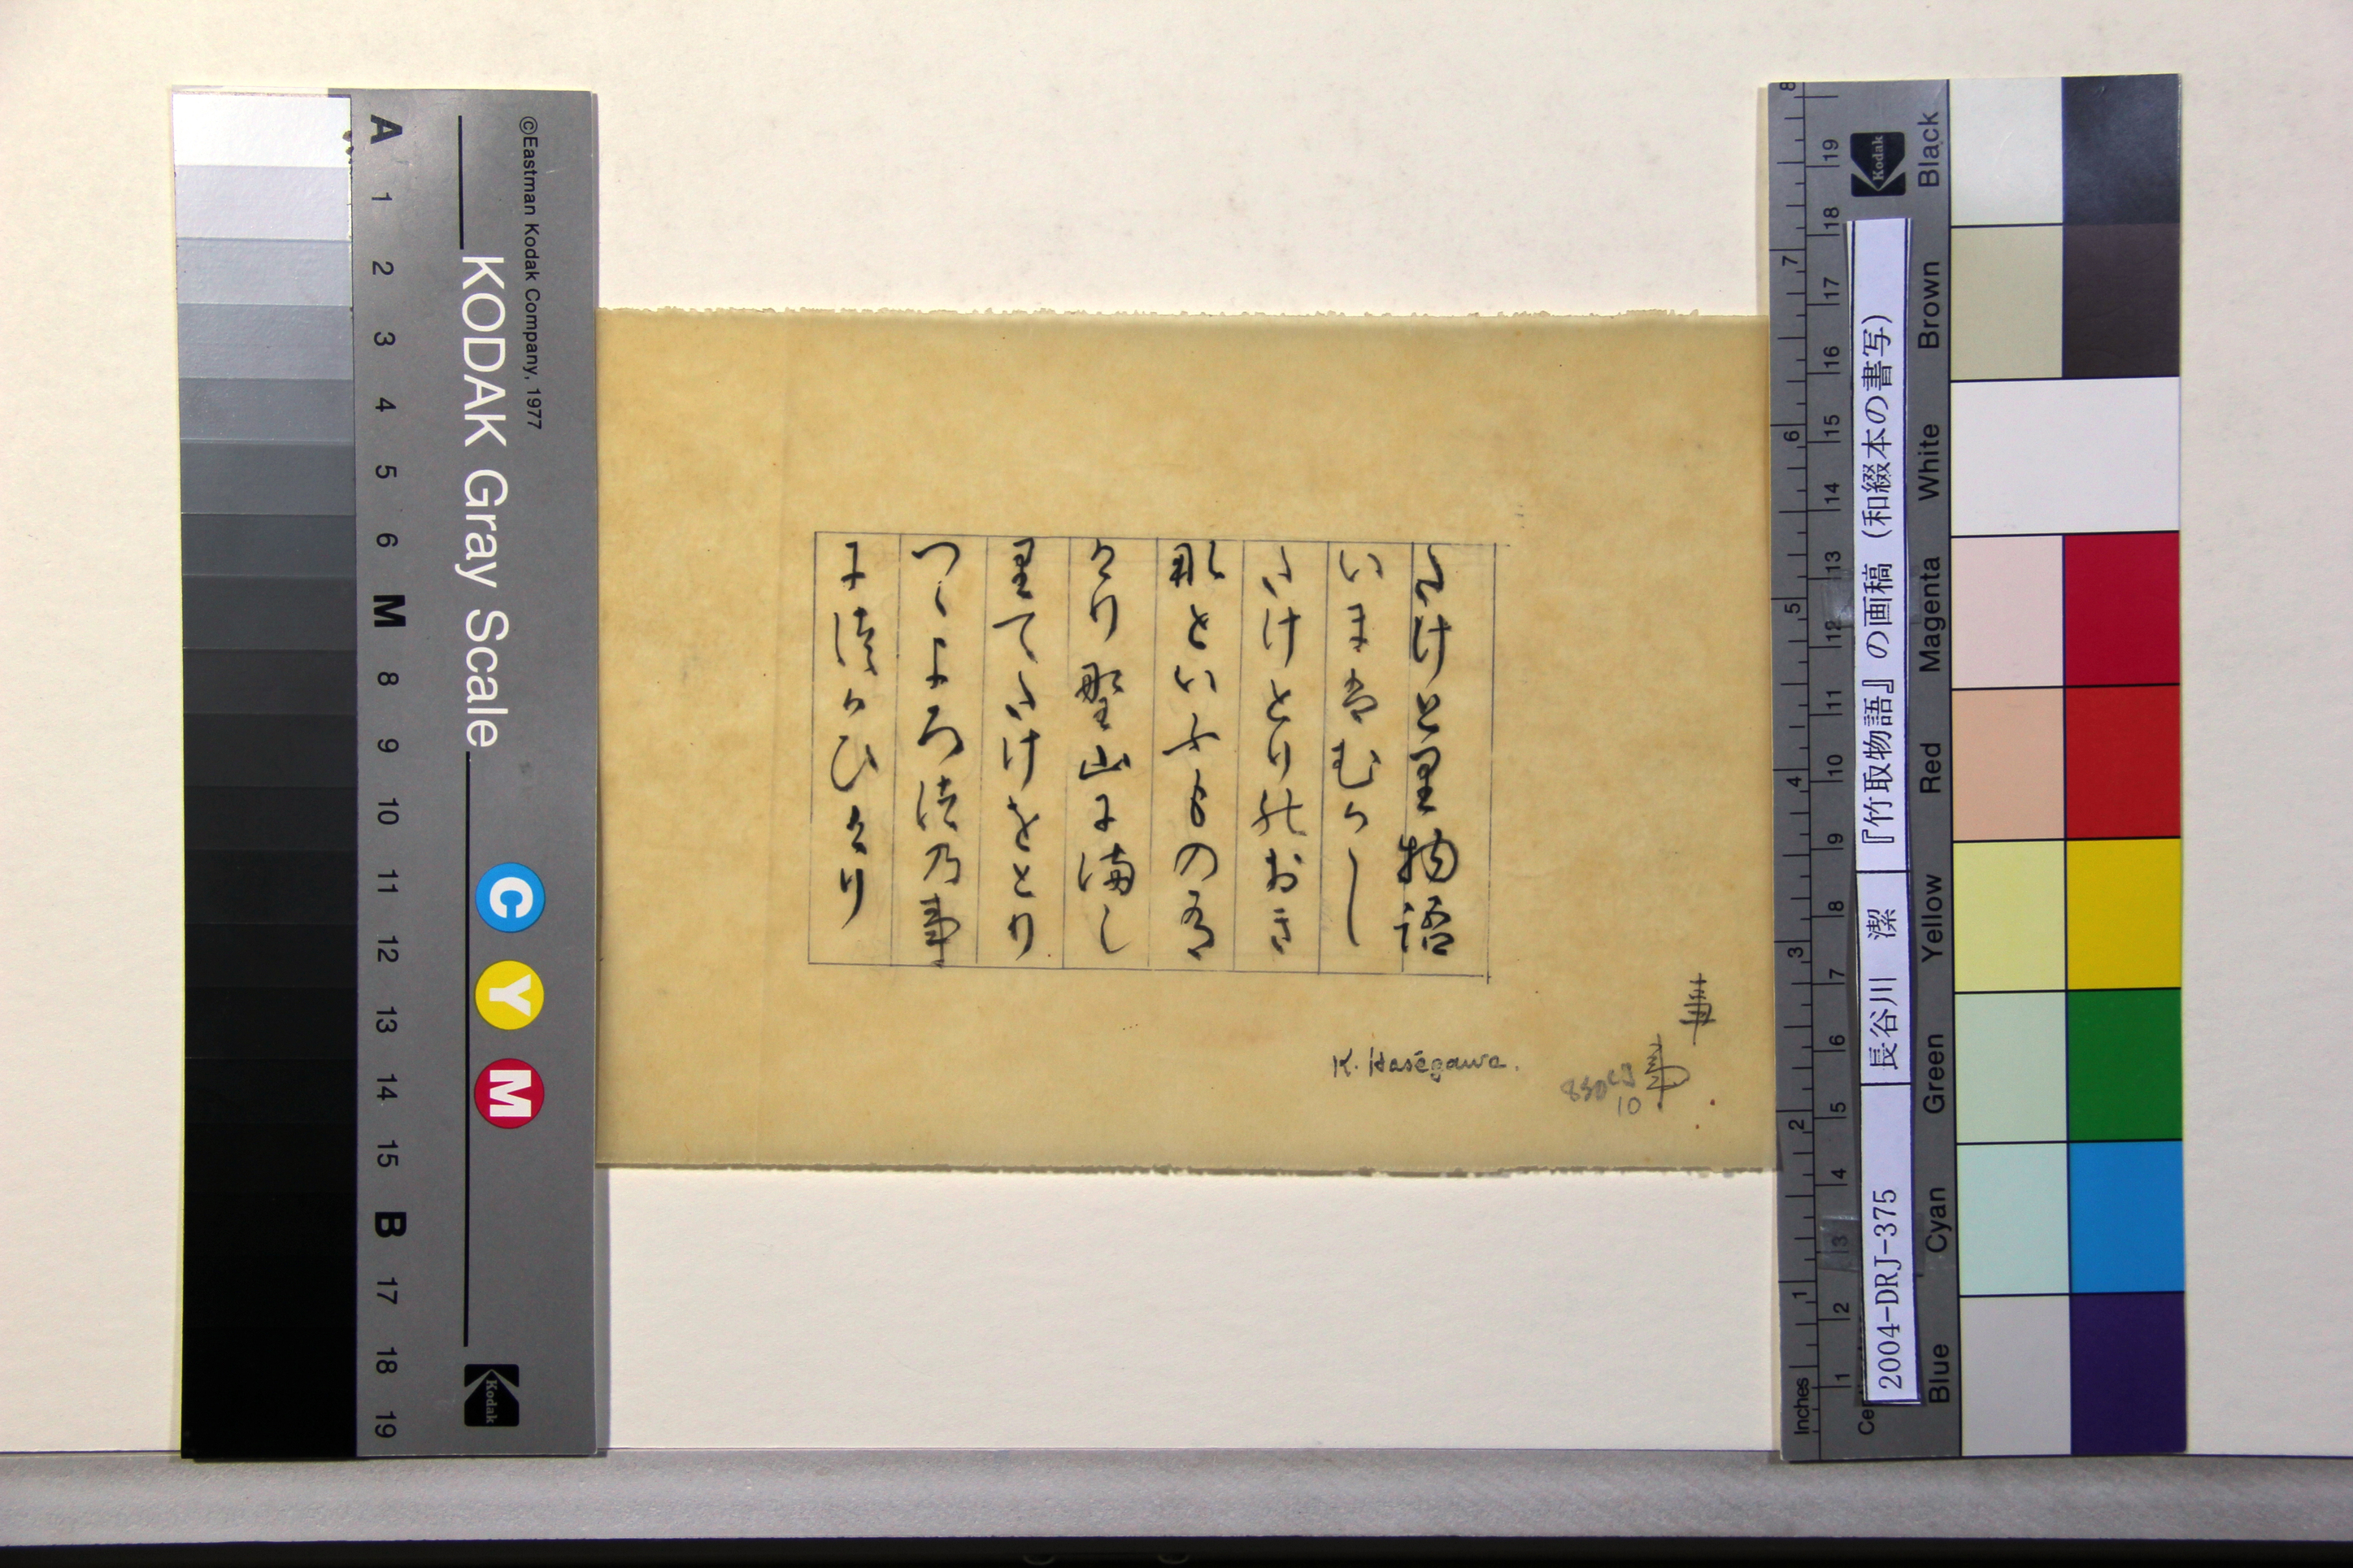 たけと里物語
いま者むかし
たけとりのおき
那といふもの有
けり野山に満し
里てたけをとり
つゝよろ徒乃事
に徒かひけり
K. Haségawa.
©Eastman Kodak Company, 1977
KODAK Gray Scale
A 1 2 3 4 5 6 M 8 9 10 11 12 13 14 15 B 17 18 19
C Y M
Kodak
2004-DRJ-375 長谷川 潔 『竹取物語』の画稿（和綴本の書写）
Kodak
Blue Cyan Green Yellow Red Magenta White Brown Black
Inches 1 2 3 4 5 6 7 8
1 2 3 4 5 6 7 8 9 10 11 12 13 14 15 16 17 18 19